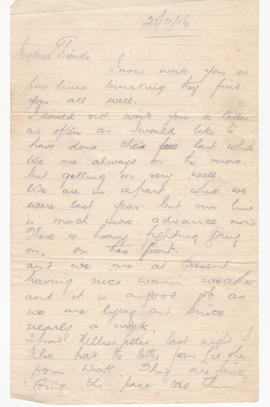 22/7/16.
My dear Friends
I now write you a
few lines trusting they find
you all well.
I could not write you a letter
as often as I would like to
have done this last while
We are always on the move.
but getting on very well.
We are in a part where we
were last year but our line
is much more advance now
There is heavy fighting going
on, on this front.
and we are at present
having nice warm weather
and it is a good job as
we are lying out since
nearly a week.
I had Nellies letter last night
Also had the letter from
from Work. They are
going the pace